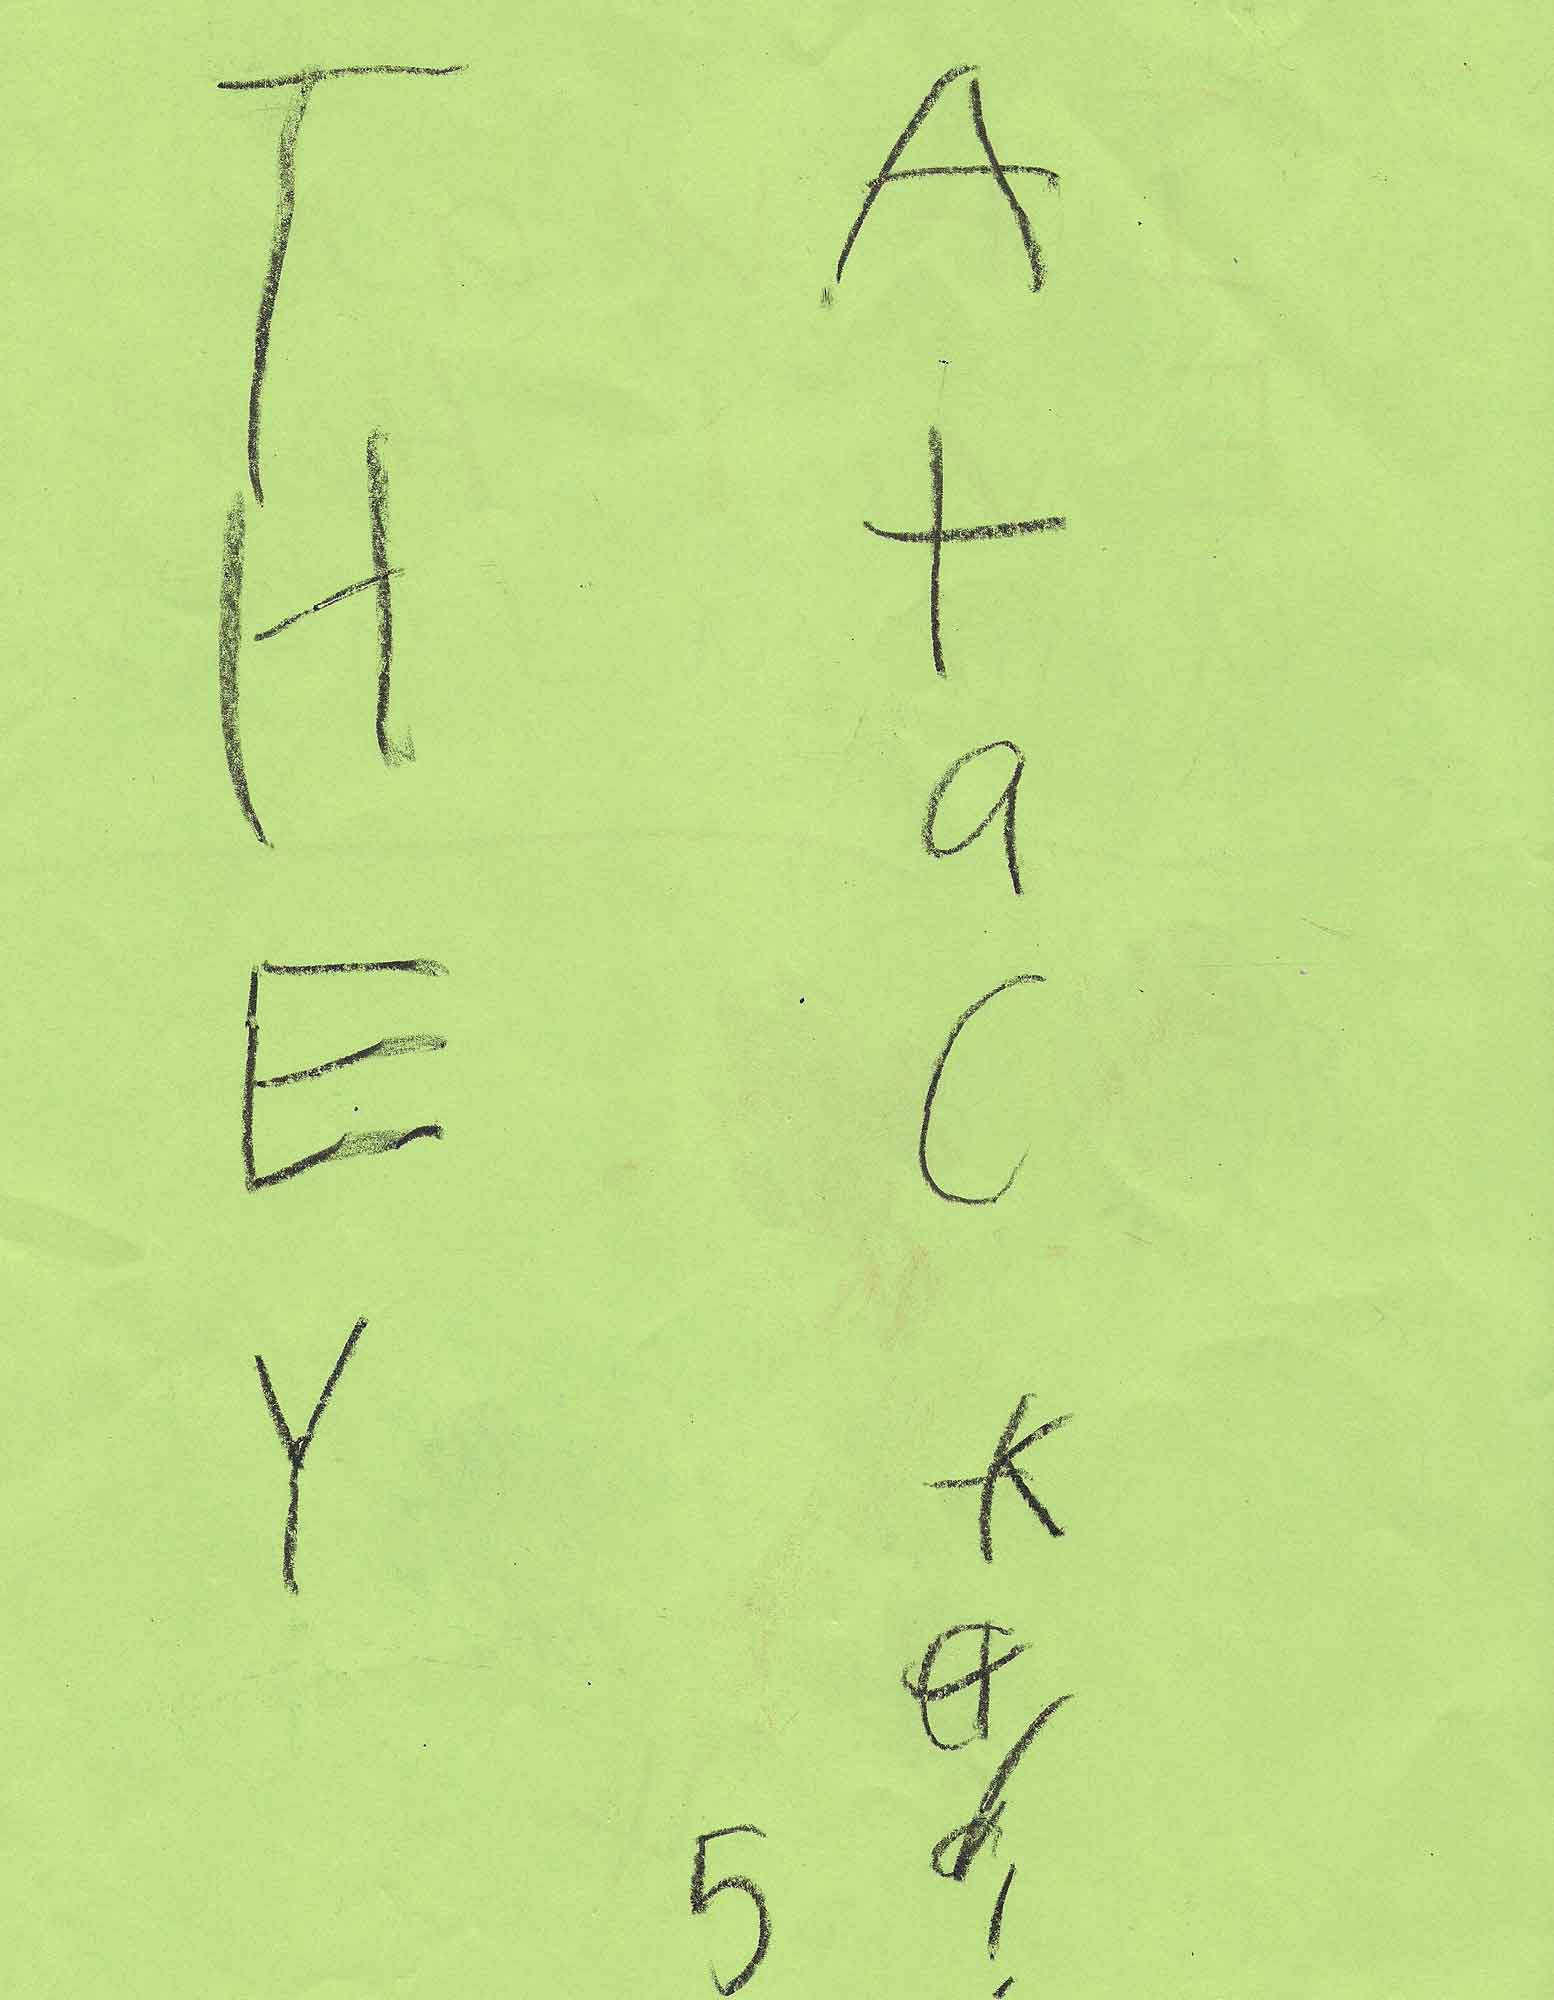 THEY
AtaCked!
5